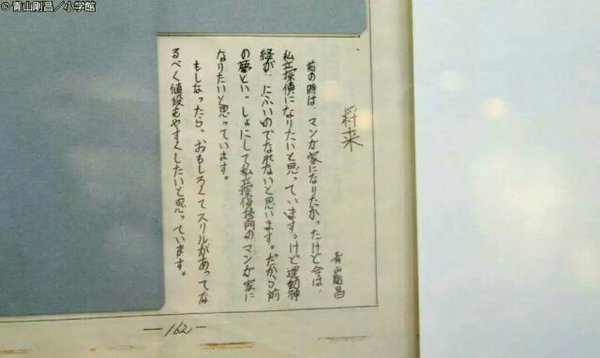 ©青山剛昌／小学館
将来
青山剛昌
前の時は、マンガ家になりたかったけど今は、
私立探偵になりたいと思っています。けど運動神
経が、にぶいのでなれないと思います。だから前
の夢といっしょにして私立探偵専門のマンガ家に
なりたいと思っています。
もしなったら、おもしろくてスリルがあってな
るべく値段もやすくしたいと思っています。
―162―